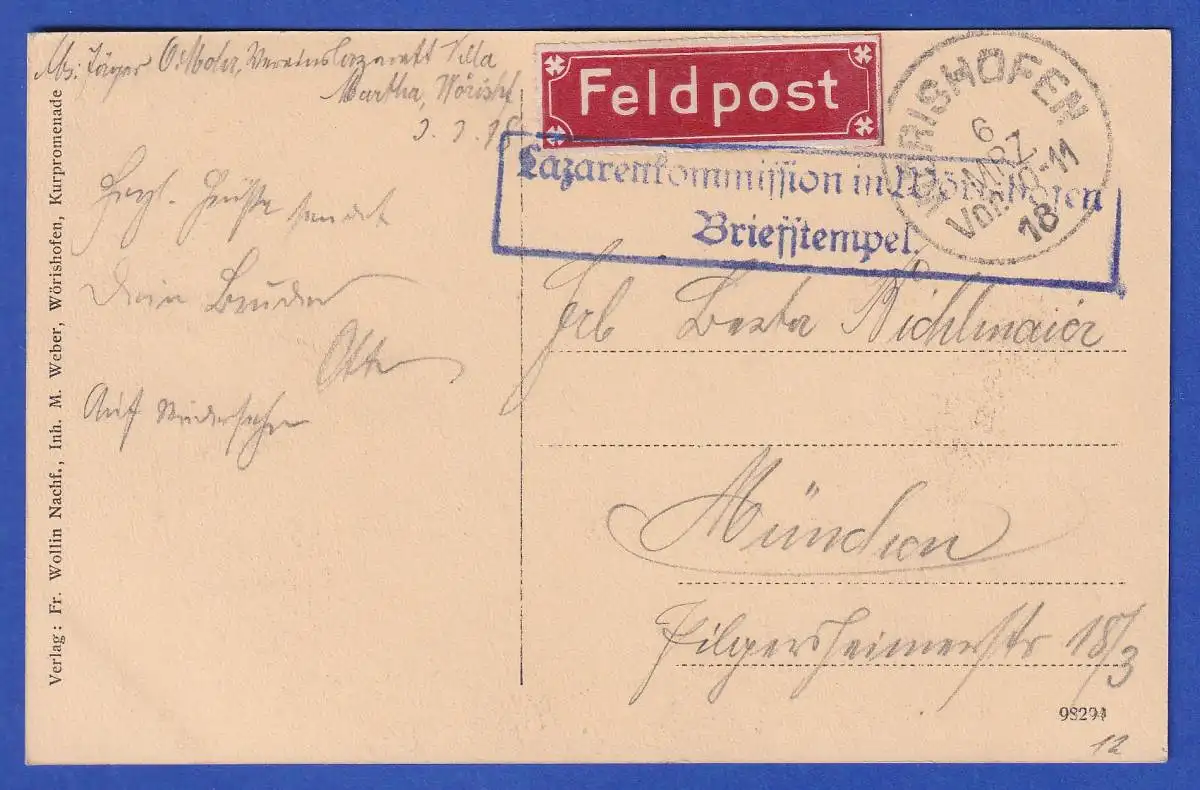 Abs. Jäger O. Mohr, Vereinslazarett Villa
Martha, Wörish.
3.3.18
Feldpost
WÖRISHOFEN
6 MRZ
Vor. 10-11
18
Lazarettkommission in Wörishofen
Briefstempel.
Herzl. Grüße sendet
Dein Bruder
Otto
Auf Wiedersehen
Berta Bichlmaier
München
Pilgersheimerstr 18/3
Verlag: Fr. Wollin Nachf., Inh. M. Weber, Wörishofen, Kurpromenade
98294
12